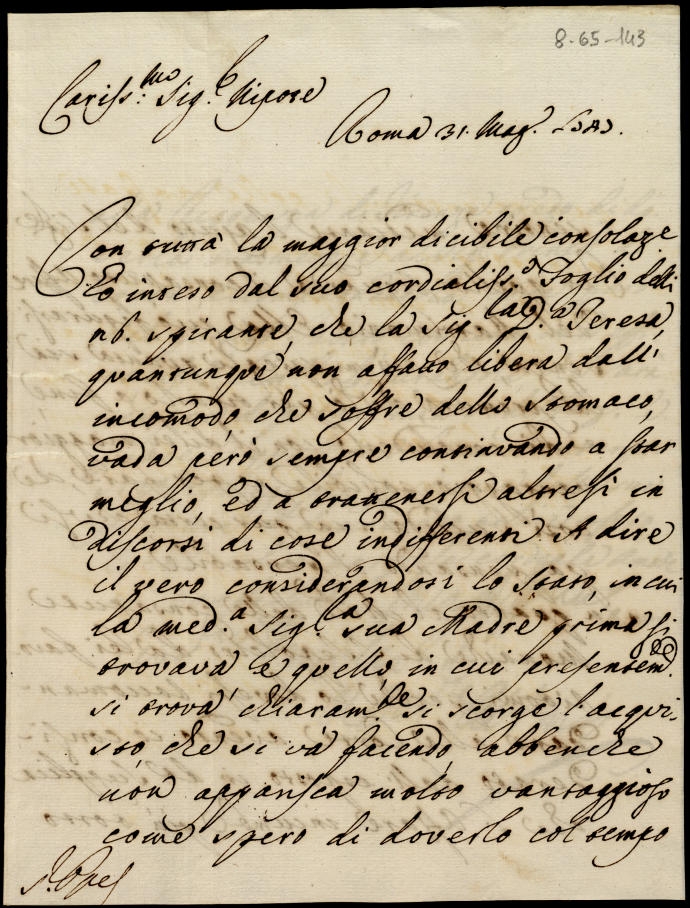 8-65-143
Cariss.mo Sig.e Nipote
Roma 31. Mag.
Con tutta la maggior dicibile consolaz.e
Ho inteso dal suo cordialiss.o Foglio delli
spirante, che la Sig.la D.a Teresa,
quantunque non affatto libera dall'
incomodo, che soffre dello stomaco,
vada però sempre continuando a star
meglio, ed a trattenersi altresi in
discorsi di cose indifferenti. A dire
il vero considerandosi lo stato, in cui
la med.a Sig.a sua Madre prima si
trovava e quello, in cui presentem.te
si trova, chiaram.te si scorge l'acqui-
sto che si và facendo, abbenche
non apparisca molto vantaggioso
come spero di doverlo col tempo